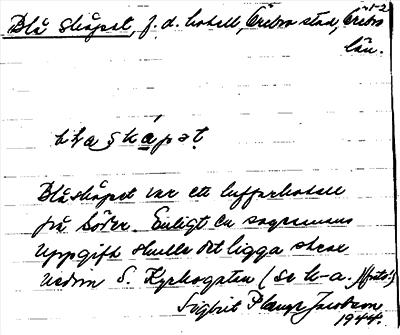 Blå skåpet, f. d. hotell, Örebro stad, Örebro
län.
Blåskåpet var ett luffarhotell
på Söder. Enligt en sagesmans
uppgift skulle det ligga strax
nedom S. Kyrkogatan (se k-a.
Sigbrit Plange Jacobson
1944.